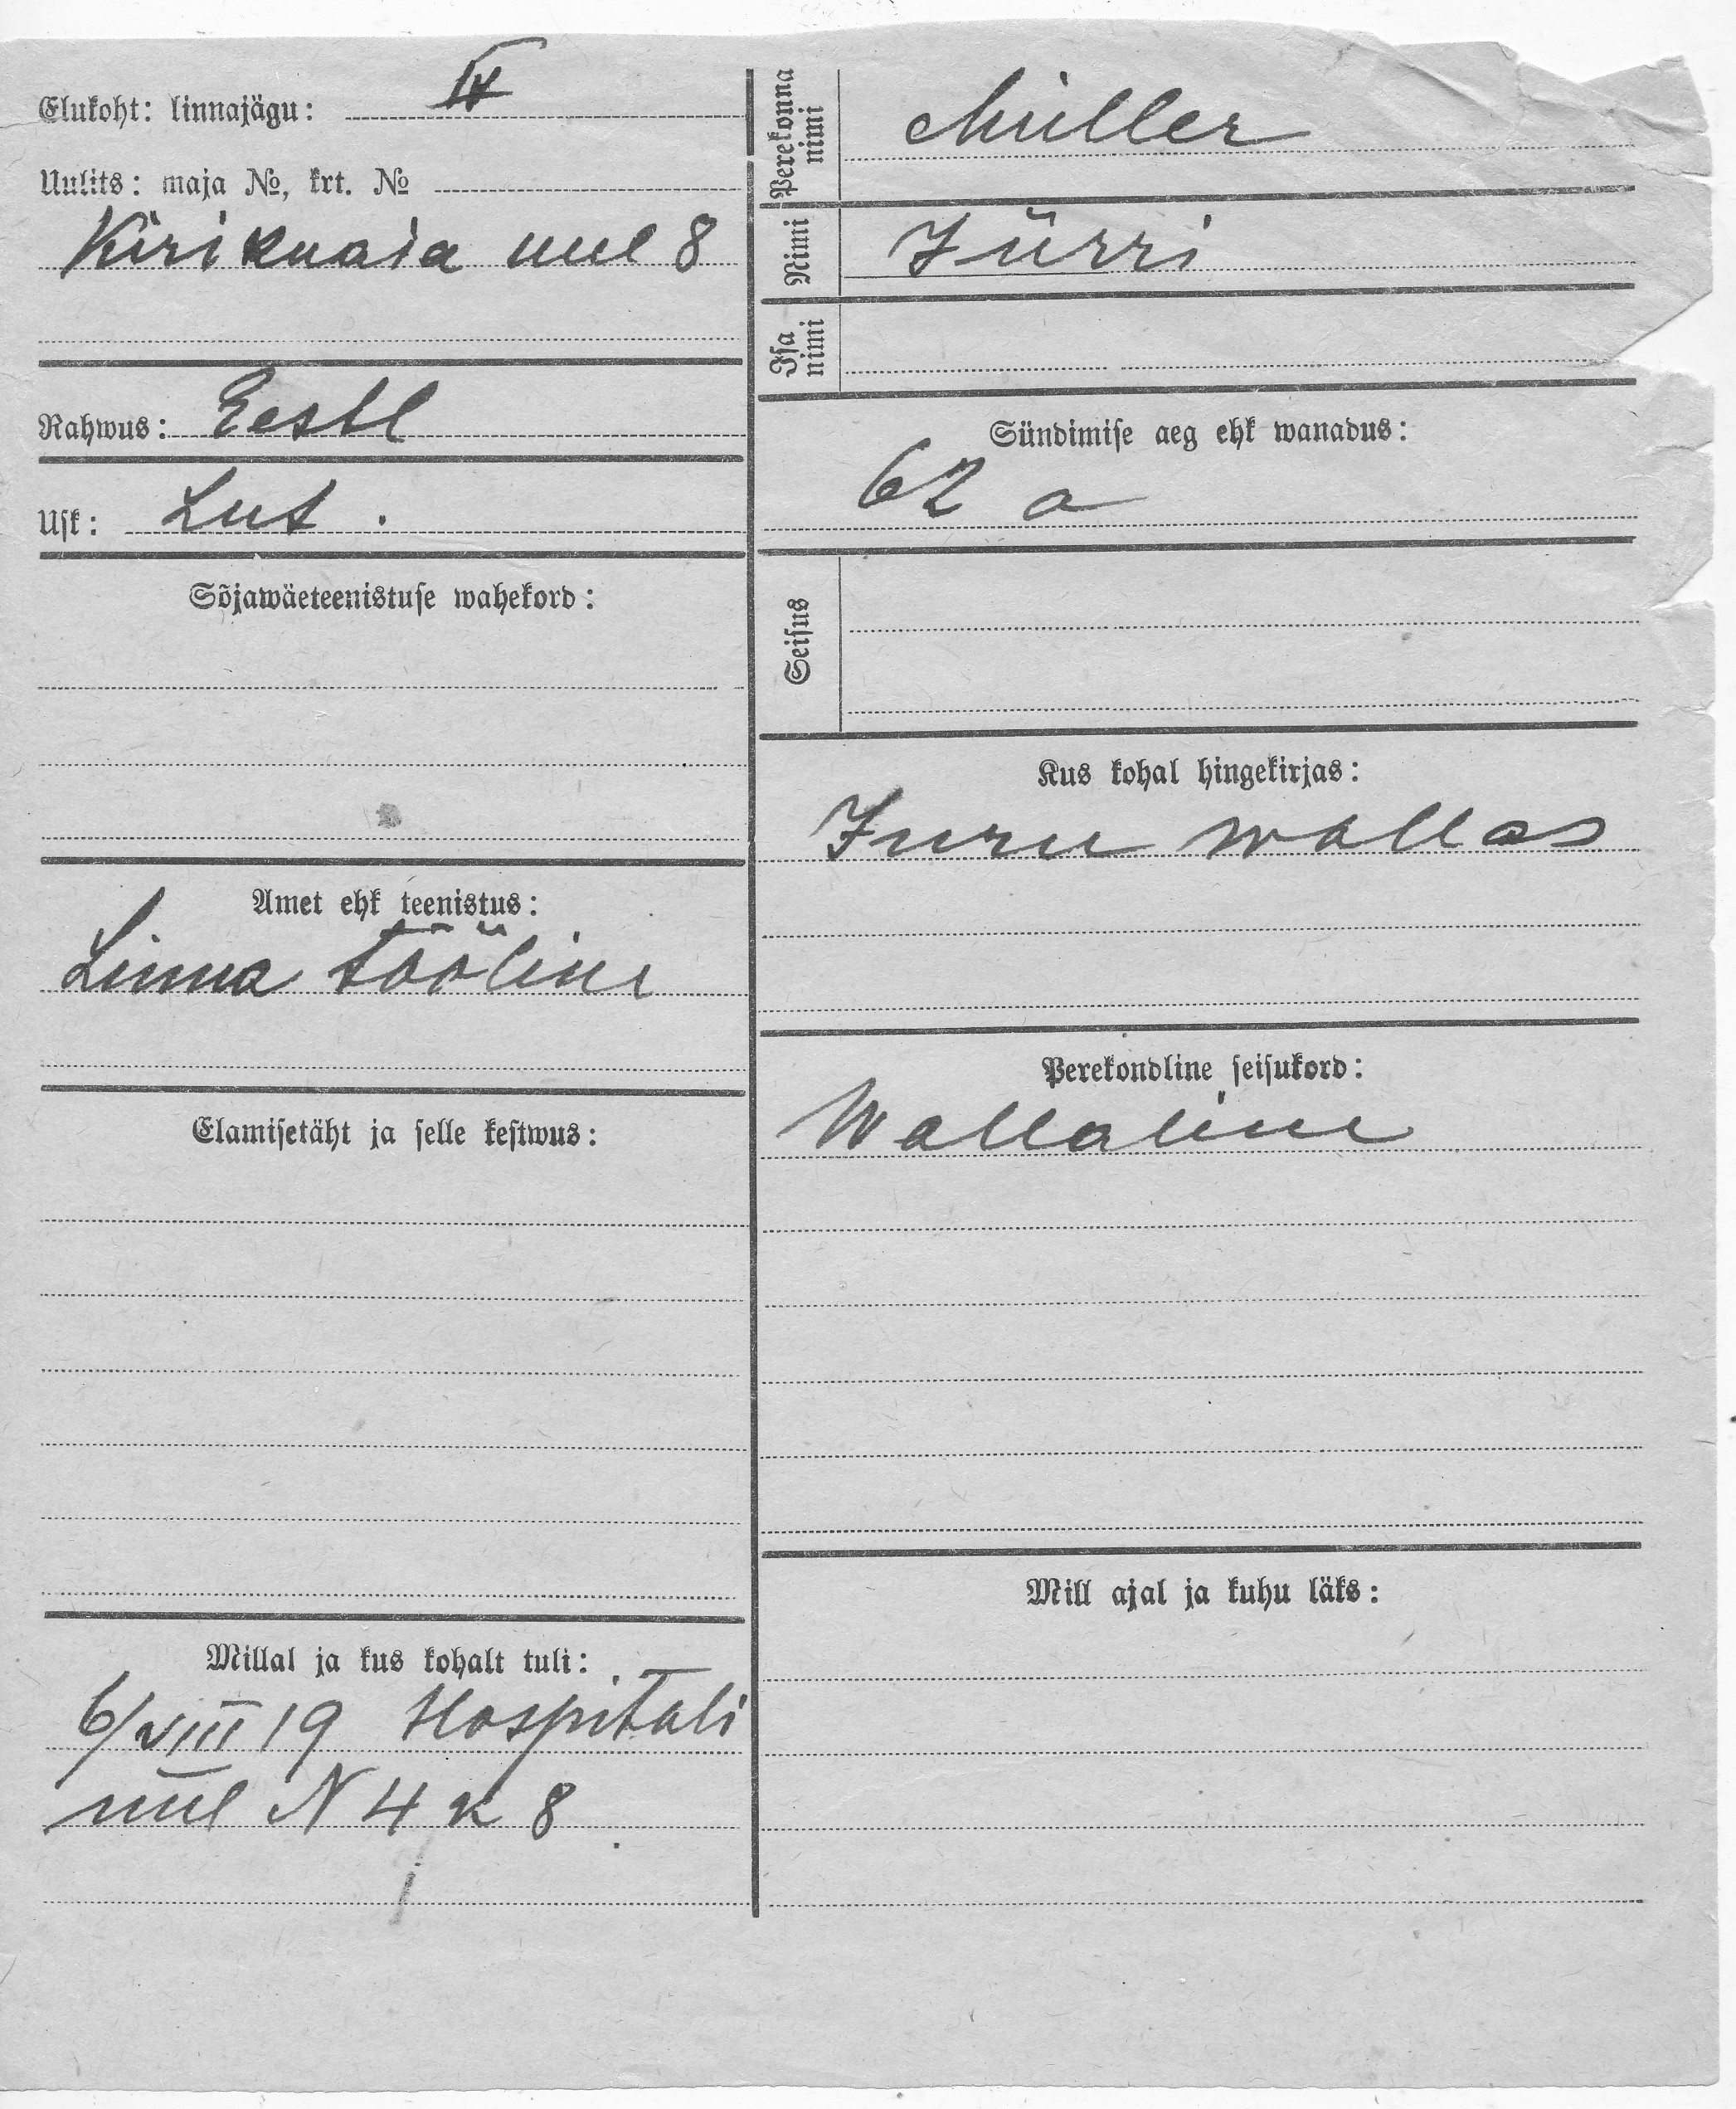 Elukoht: linnajägu: IV
Uulits: maja №, krt. №
Kirikuaia uul 8
Rahwus: Eestl
Usk: Lut.
Sõjawäeteenistuse wahekord:
Amet ehk teenistus:
Linna tööline
Elamisetäht ja selle kestwus:
Millal ja kus kohalt tuli:
6/VIII 19 Hospitali
uul N 4 k 8
Perekonna nimi
Müller
Nimi
Jürri
Isa nimi
Sündimise aeg ehk wanadus:
62 a
Seisus
Kus kohal hingekirjas:
Juru wallas
Perekondline seisukord:
Wallaline
Mill ajal ja kuhu läks: